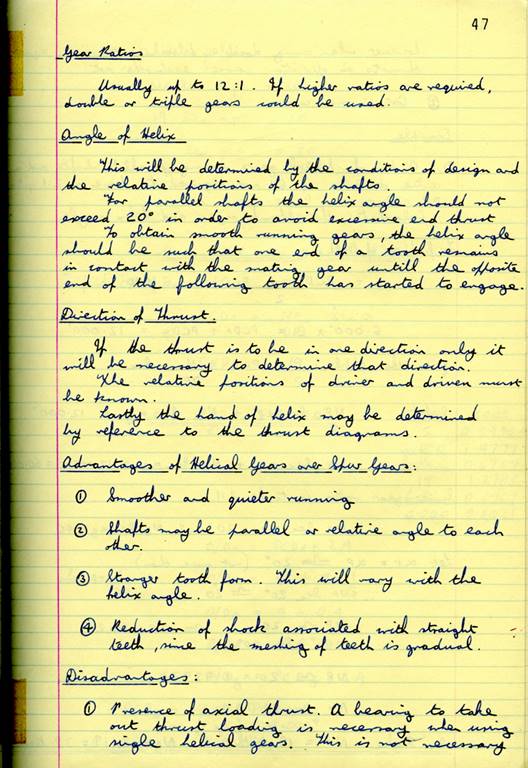 47
Gear Ratios
Usually up to 12:1. If higher ratios are required,
double or triple gears could be used.
Angle of Helix
This will be determined by the conditions of design and
the relative positions of the shafts.
For parallel shafts the helix angle should not
exceed 20° in order to avoid excessive end thrust
To obtain smooth running gears, the helix angle
should be such that one end of a tooth remains
in contact with the mating gear untill the opposite
end of the following tooth has started to engage.
Direction of Thrust.
If the thrust is to be in one direction only it
will be necessary to determine that direction.
The relative positions of driver and driven must
be known.
Lastly the hand of helix may be determined
by reference to the thrust diagrams.
Advantages of Helical Gears over Spur Gears:
① Smoother and quieter running
② Shafts may be parallel or relative angle to each
other.
③ Stronger tooth form. This will vary with the
helix angle.
④ Reduction of shock associated with straight
teeth, since the meshing of teeth is gradual.
Disadvantages:
① Presence of axial thrust. A bearing to take
out thrust loading is necessary when using
single helical gears. This is not necessary